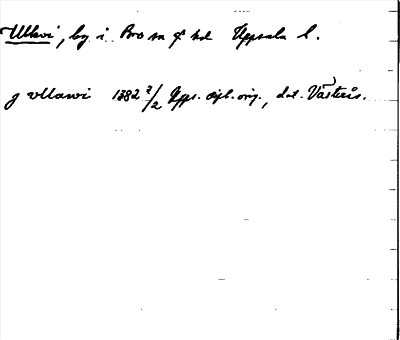 Ullevi, by i Bro sn o hd Uppsala l.
j vllawi 1382 2/2 Upps. dipl. orig., dat. Västerås.